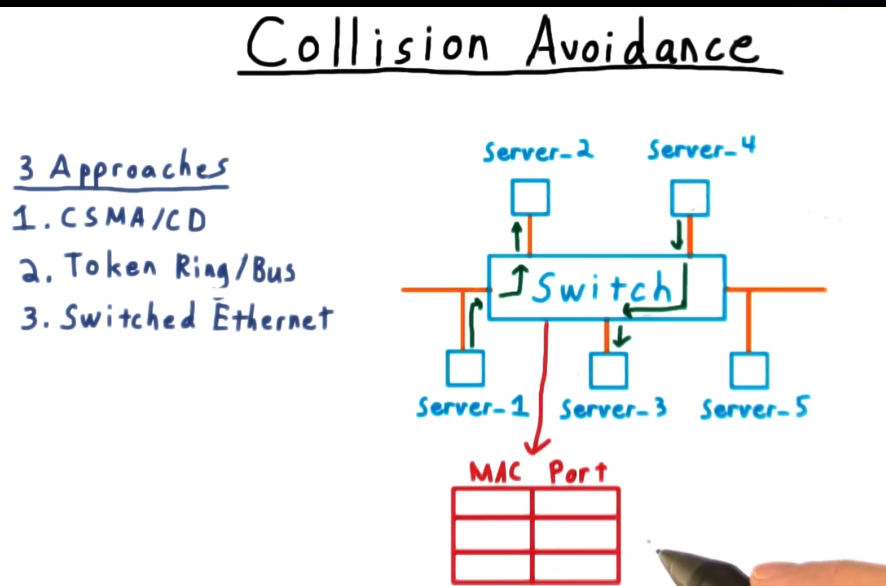 Collision Avoidance
3 Approaches
1. CSMA/CD
2. Token Ring/Bus
3. Switched Ethernet
Server-2
Server-4
Switch
Server-1
Server-3
Server-5
MAC Port